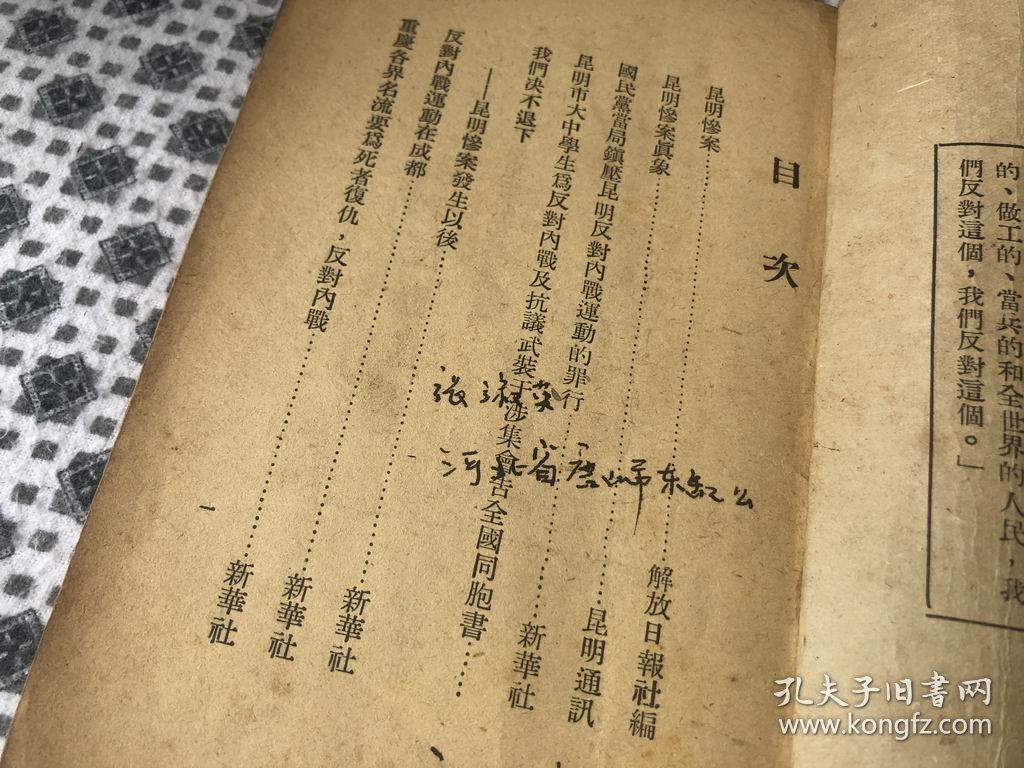 的、做工的、當兵的和全世界的人民，我
們反對這個，我們反對這個。」
目次
昆明慘案………解放日報社編
昆明慘案眞象………昆明通訊
國民黨當局鎭壓昆明反對內戰運動的罪行………新華社
昆明市大中學生爲反對內戰及抗議武裝干涉集會告全國同胞書……
我們决不退下
——昆明慘案發生以後………新華社
反對內戰運動在成都………新華社
重慶各界名流要爲死者復仇，反對內戰………新華社
河北省唐山
孔夫子旧书网
www.kongfz.com